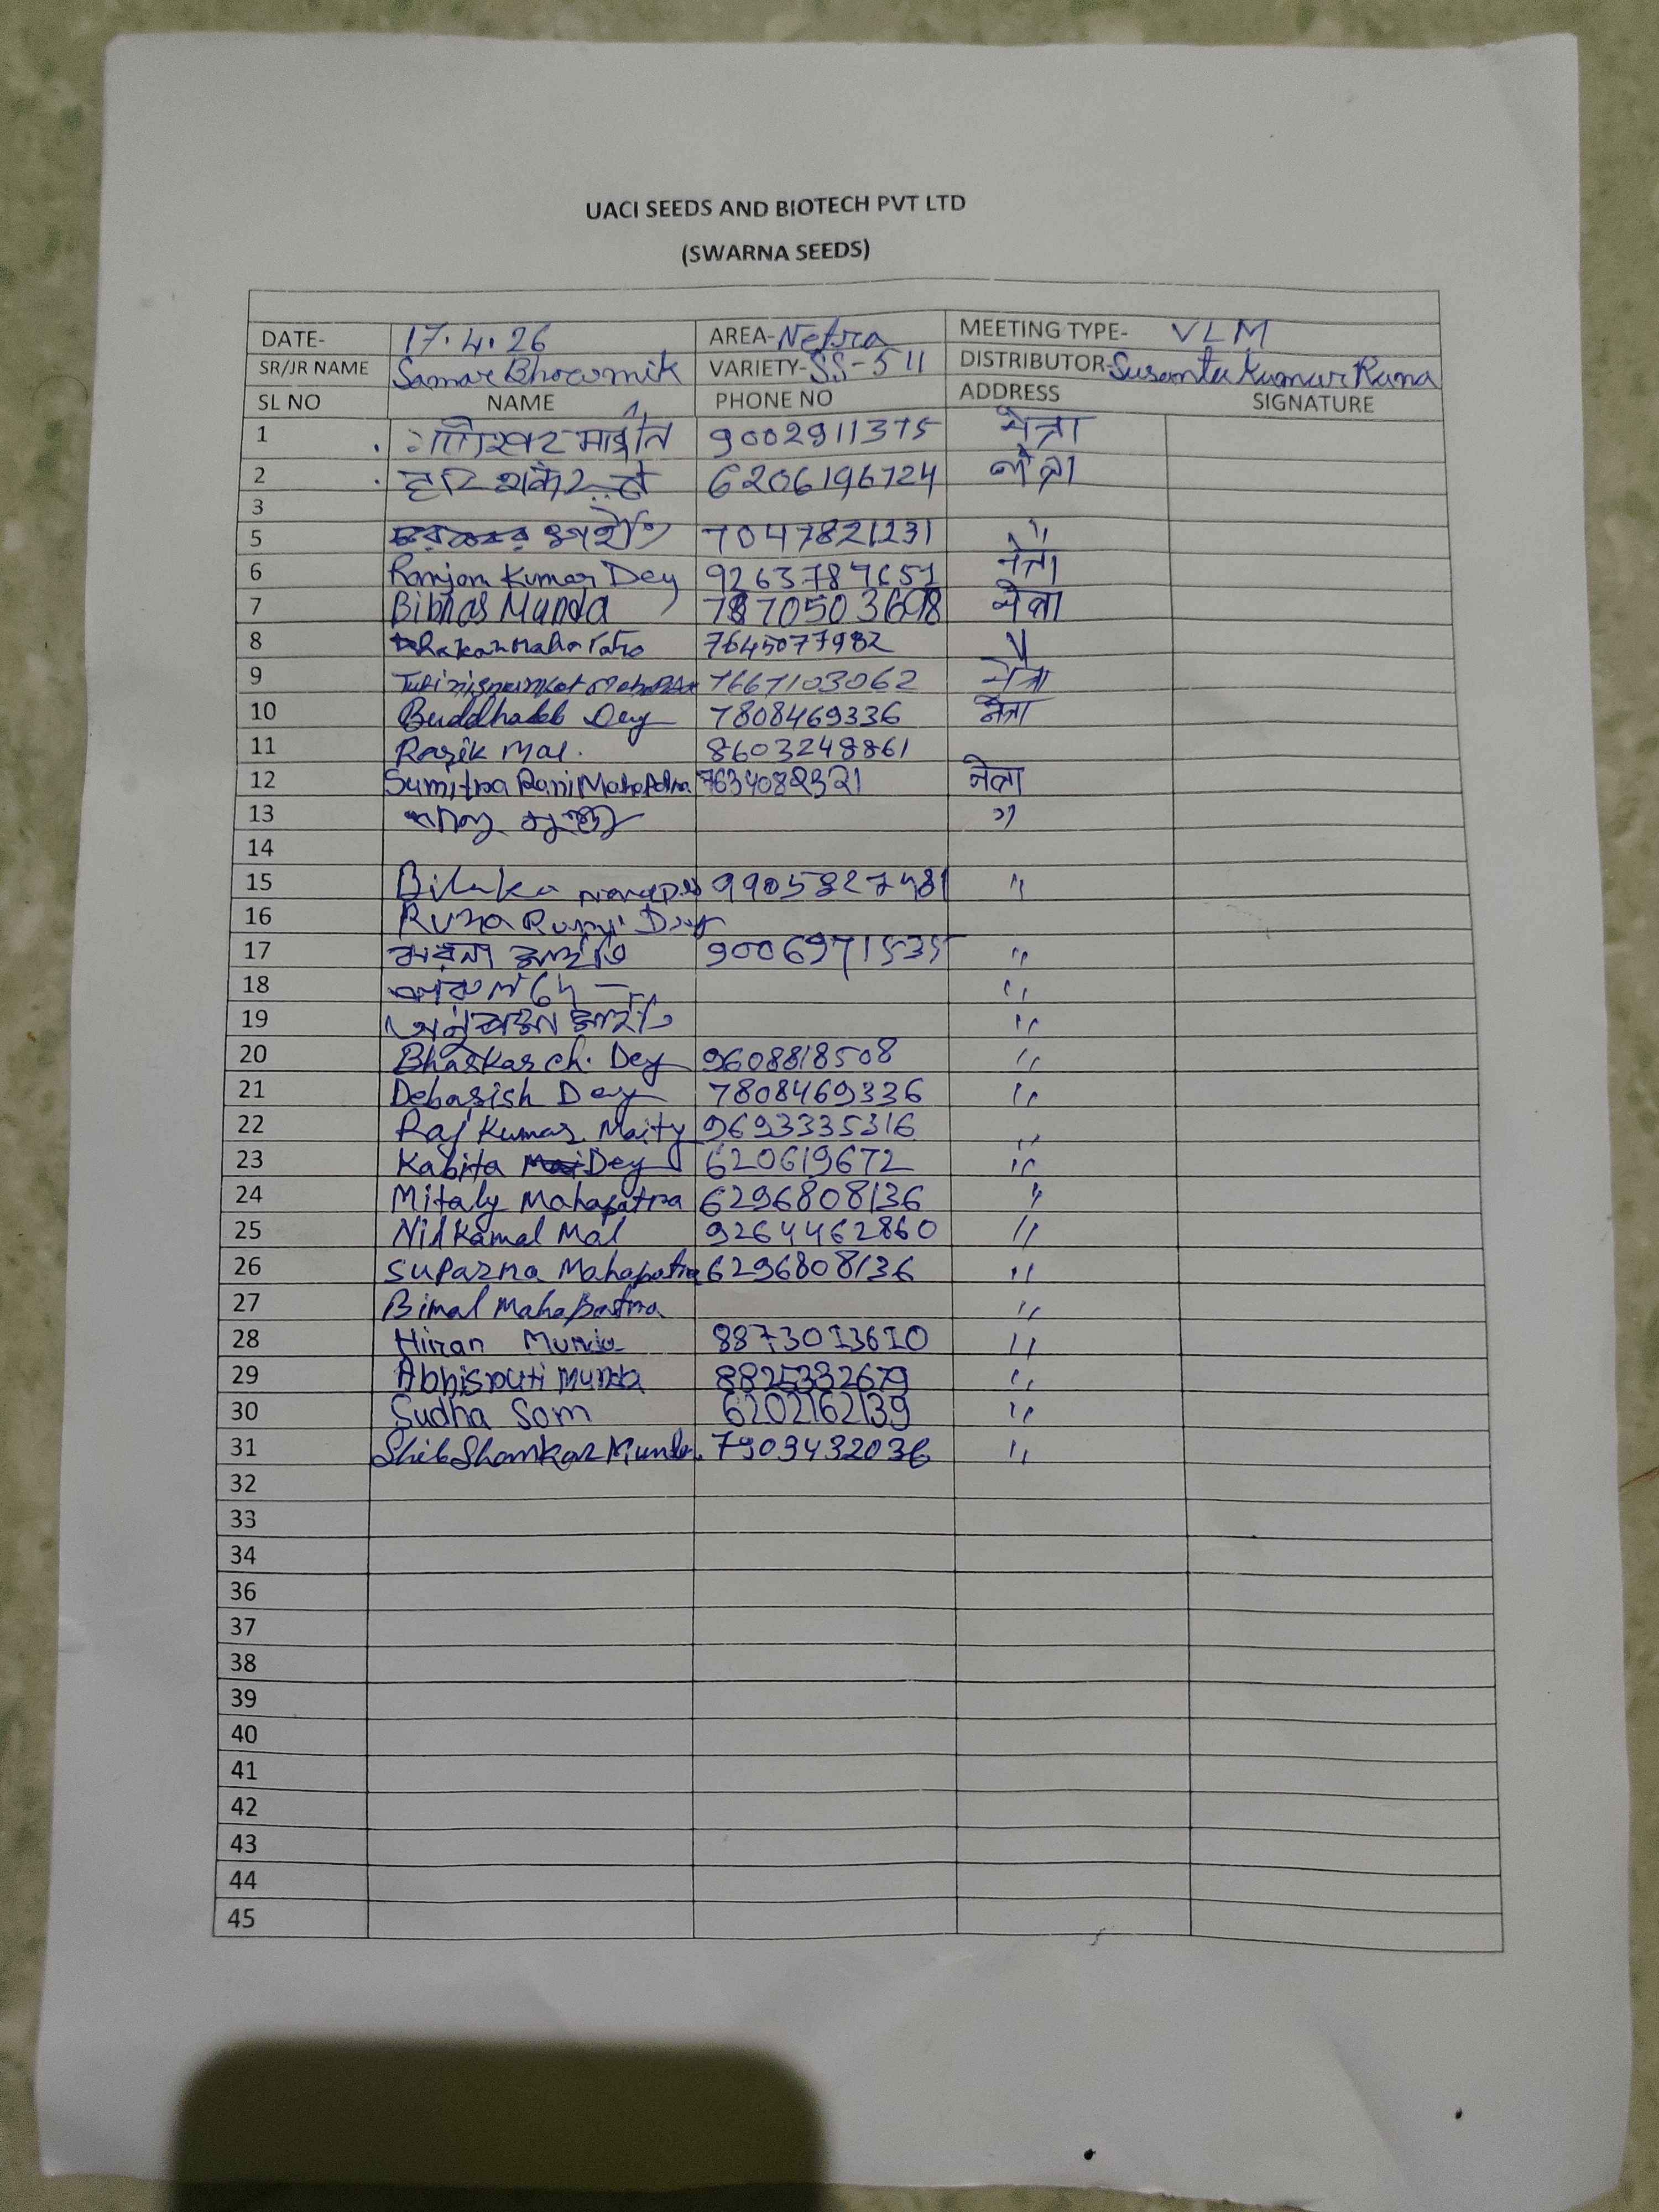 UACI SEEDS AND BIOTECH PVT LTD
(SWARNA SEEDS)
DATE- 17.4.26 AREA- Netra MEETING TYPE- VLM
SR/JR NAME Samar Bhowmik VARIETY- SS-511 DISTRIBUTOR- Susanta Kumar Rana
SL NO NAME PHONE NO ADDRESS SIGNATURE
1 9002911375 नेत्रा
2 6206196724 नेत्रा
3
5 7047821231 "
6 Ranjan Kumar Dey 9263784651 नेत्रा
7 Bibhas Munda नेत्रा
8 7645077982 "
9 7667103062 नेत्रा
10 Buddhadeb Dey 7808469336 नेत्रा
11 Rasik Mal. 8603248861
12 Sumitra Rani Mahapatra 7634082321 नेत्रा
13 "
14
15 9905827481 "
16 Runa Rani Dey
17 ময়না মাইতি 9006971535 "
18 পারুল দে "
19 মাইতি "
20 Bhaskar ch. Dey 9608818508 "
21 Debasish Dey 7808469336 "
22 Raj Kumar Maity 9693335316 "
23 Kabita Dey 620619672 "
24 Mitaly Mahapatra 6296808136 "
25 Nilkamal Mal 9264462860 "
26 Suparna Mahapatra 6296808136 "
27 Bimal Mahapatra "
28 Hiran Munda 8873013610 "
29 Munda 8825332679 "
30 Sudha Som 6202162139 "
31 Shib Shankar Munda. 7909432036 "
32
33
34
36
37
38
39
40
41
42
43
44
45